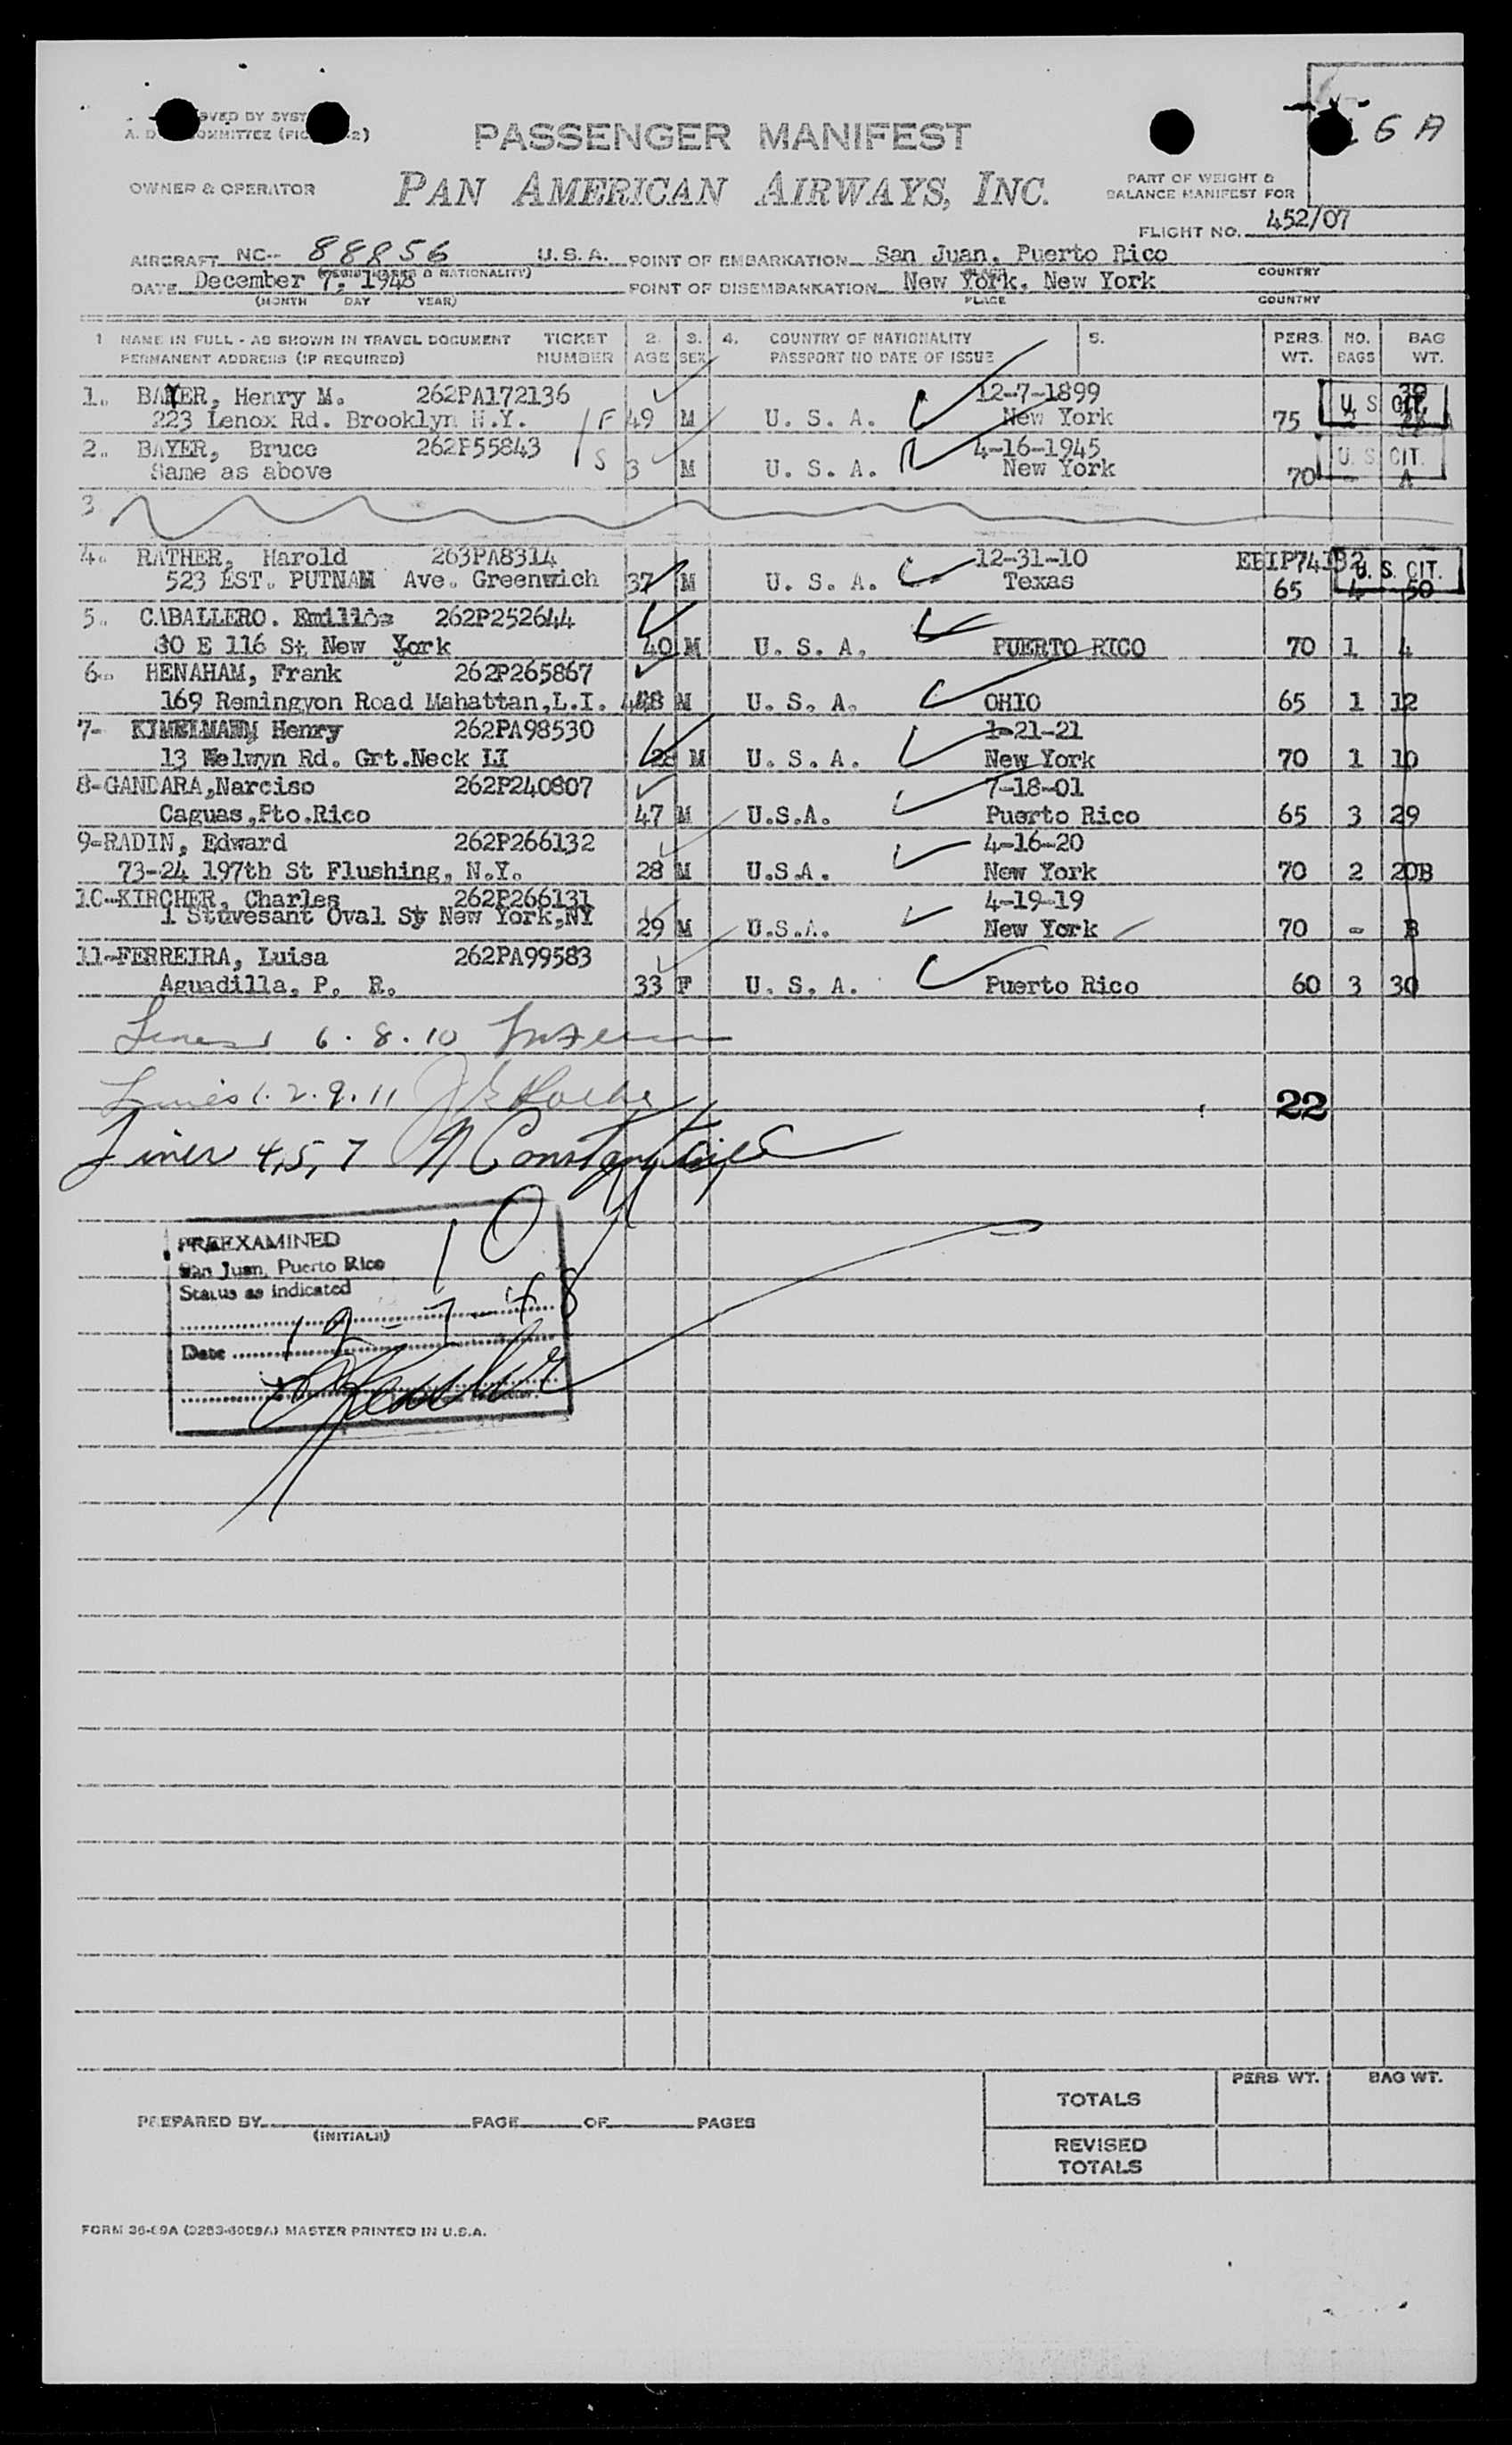 OVED BY SYST
A. D OMMITTEE (FIG 2)
PASSENGER MANIFEST
6 A
OWNER & OPERATOR
PAN AMERICAN AIRWAYS, INC.
PART OF WEIGHT &
BALANCE MANIFEST FOR
FLIGHT NO. 452/07
AIRCRAFT NC- 88856 U.S.A. POINT OF EMBARKATION San Juan, Puerto Rico
DATE December 7, 1948 POINT OF DISEMBARKATION New York, New York
(MONTH DAY YEAR) PLACE COUNTRY
1 NAME IN FULL - AS SHOWN IN TRAVEL DOCUMENT TICKET 2. 3. 4. COUNTRY OF NATIONALITY 5. PERS. NO. BAG
PERMANENT ADDRESS (IF REQUIRED) NUMBER AGE SEX PASSPORT NO DATE OF ISSUE WT. BAGS WT.
1. BAYER, Henry M. 262PA172136 12-7-1899
223 Lenox Rd. Brooklyn N.Y. F 49 M U. S. A. New York 75 U. S. CIT.
2. BAYER, Bruce 262P55843 4-16-1945
Same as above S 3 M U. S. A. New York 70 - A U. S. CIT.
3
4. RATHER, Harold 263PA8314 12-31-10
523 EST. PUTNAM Ave. Greenwich 37 M U. S. A. Texas 65 4 50 U. S. CIT.
5. CABALLERO. 262P252644
80 E 116 St New York 40 M U. S. A. PUERTO RICO 70 1 4
6- HENAHAM, Frank 262P265867
169 Remingyon Road Mahattan,L.I. 48 M U. S. A. OHIO 65 1 12
7- KIMELMANN Henry 262PA98530 1-21-21
13 Welwyn Rd. Grt.Neck LI 28 M U. S. A. New York 70 1 10
8-GANDARA,Narciso 262P240807 7-18-01
Caguas,Pto.Rico 47 M U.S.A. Puerto Rico 65 3 29
9-RADIN, Edward 262P266132 4-16-20
73-24 197th St Flushing, N.Y. 28 M U.S.A. New York 70 2 20B
10-KIRCHER, Charles 262P266131 4-19-19
1 Stuvesant Oval St New York,NY 29 M U.S.A. New York 70 - B
11-FERREIRA, Luisa 262PA99583
Aguadilla, P. R. 33 F U. S. A. Puerto Rico 60 3 30
Lines 6 . 8 . 10
Lines 1. 2. 9. 11
22
Lines 4, 5, 7 N Constantine
10
PREEXAMINED
San Juan, Puerto Rico
Status as indicated
Date 12-7-48
TOTALS PERS. WT. BAG WT.
PREPARED BY PAGE OF PAGES
(INITIALS)
REVISED
TOTALS
FORM 36-69A MASTER PRINTED IN U.S.A.